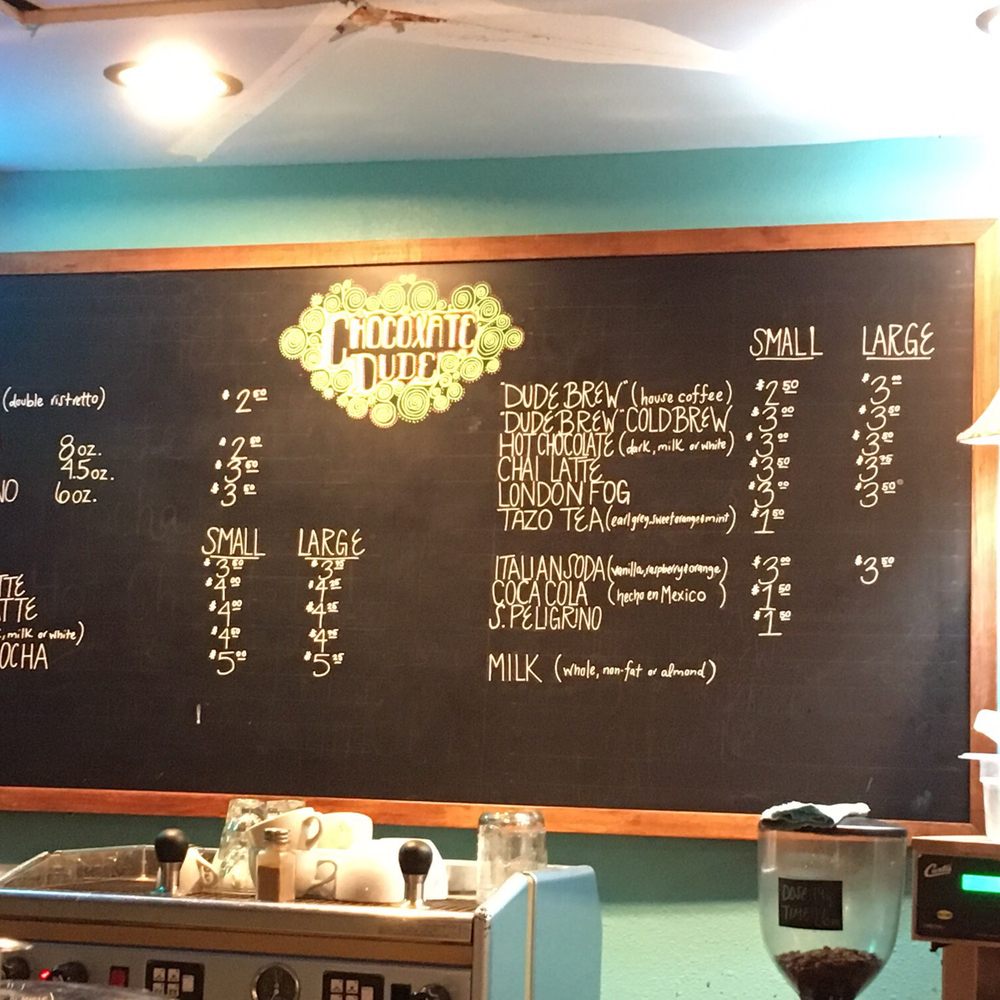 CHOCOXATE
DUDE
SMALL LARGE
(double ristretto) $2.50
8 oz. $2.50
4.5 oz. $3.50
NO 6 oz. $3.50
SMALL LARGE
$3.50 $3.75
TTE $4.00 $4.25
ATTE $4.00 $4.25
, milk or white) $4.50 $4.75
OCHA $5.00 $5.25
"DUDE BREW" (house coffee) $2.50 $3.00
"DUDE BREW" COLD BREW $3.00 $3.50
HOT CHOCOLATE (dark, milk or white) $3.00 $3.50
CHAI LATTE $3.50 $3.75
LONDON FOG $3.00 $3.50
TAZO TEA (earl grey, sweet orange & mint) $1.50
ITALIAN SODA (vanilla, raspberry & orange) $3.00 $3.50
COCA COLA (hecho en Mexico) $1.50
S. PELIGRINO $1.50
MILK (whole, non-fat or almond)
2
Curtis